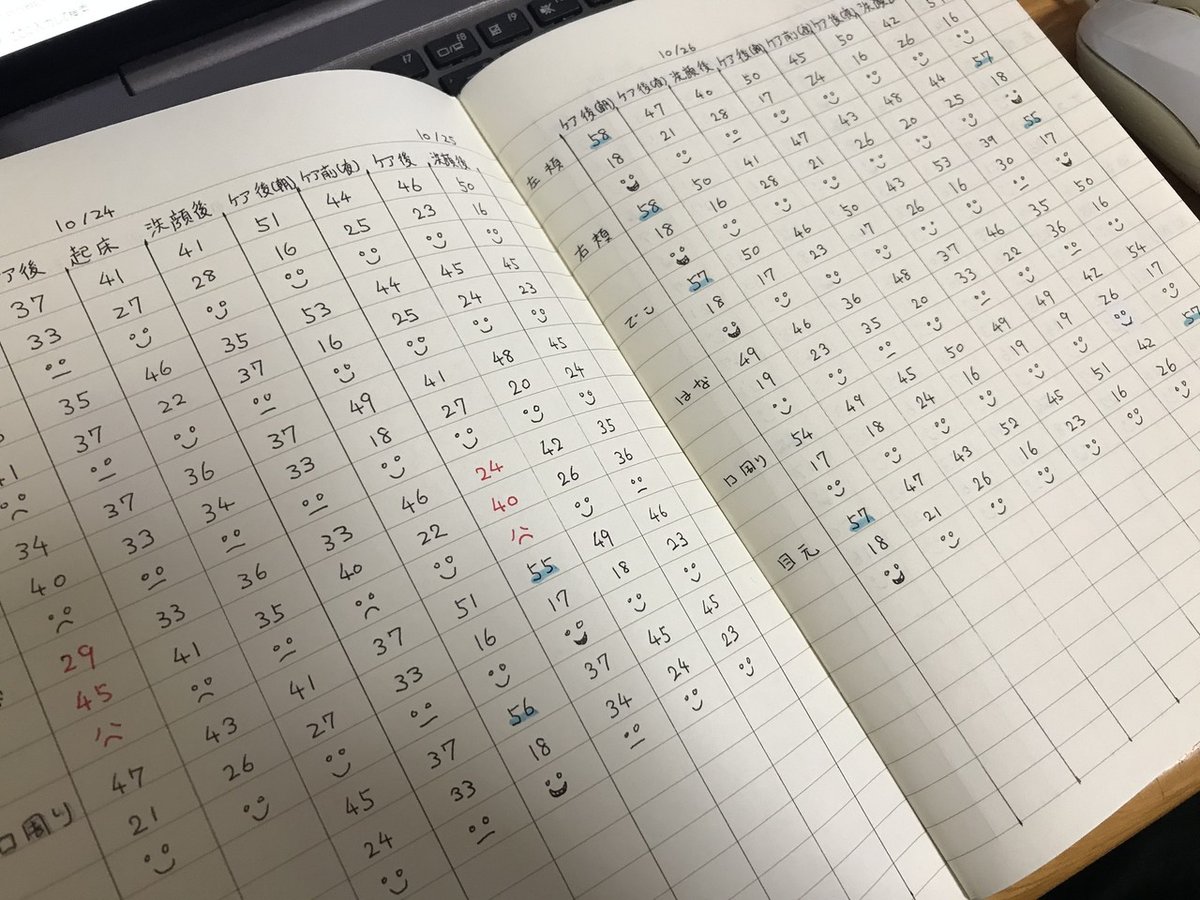 10/24
10/25
ア後 起床 洗顔後 ケア後(朝) ケア前(夜) ケア後 洗顔後
37 41 41 51 44 46 50
33 27 28 16 25 23 16
35 46 35 53 44 45 45
37 22 37 16 25 24 23
41 37 36 37 49 41 48 45
33 34 33 18 27 20 24
34 33 36 33 46 24 42 35
40 41 35 40 22 40 26 36
29 43 41 37 51 55 49 46
45 26 27 33 16 17 18 23
口周り 47 45 37 56 37 45 45
21 24 33 18 34 24 23
10/26
ケア後(朝) ケア後(夜) 洗顔後 ケア後(朝) ケア前(夜) ケア後(夜) 洗顔後
左頬 58 47 40 50 45 50 42
18 21 28 17 24 16 26 16
右頬 58 50 41 47 43 48 44 57
18 16 28 21 26 20 25 18
でこ 57 50 46 50 43 53 39 55
18 17 23 17 26 16 30 17
はな 49 46 36 48 37 46 35 50
19 23 35 20 33 22 36 16
口周り 54 49 45 50 49 49 42 54
17 18 24 16 19 19 26 17
目元 57 47 43 52 45 51 42 57
18 21 26 16 23 16 26